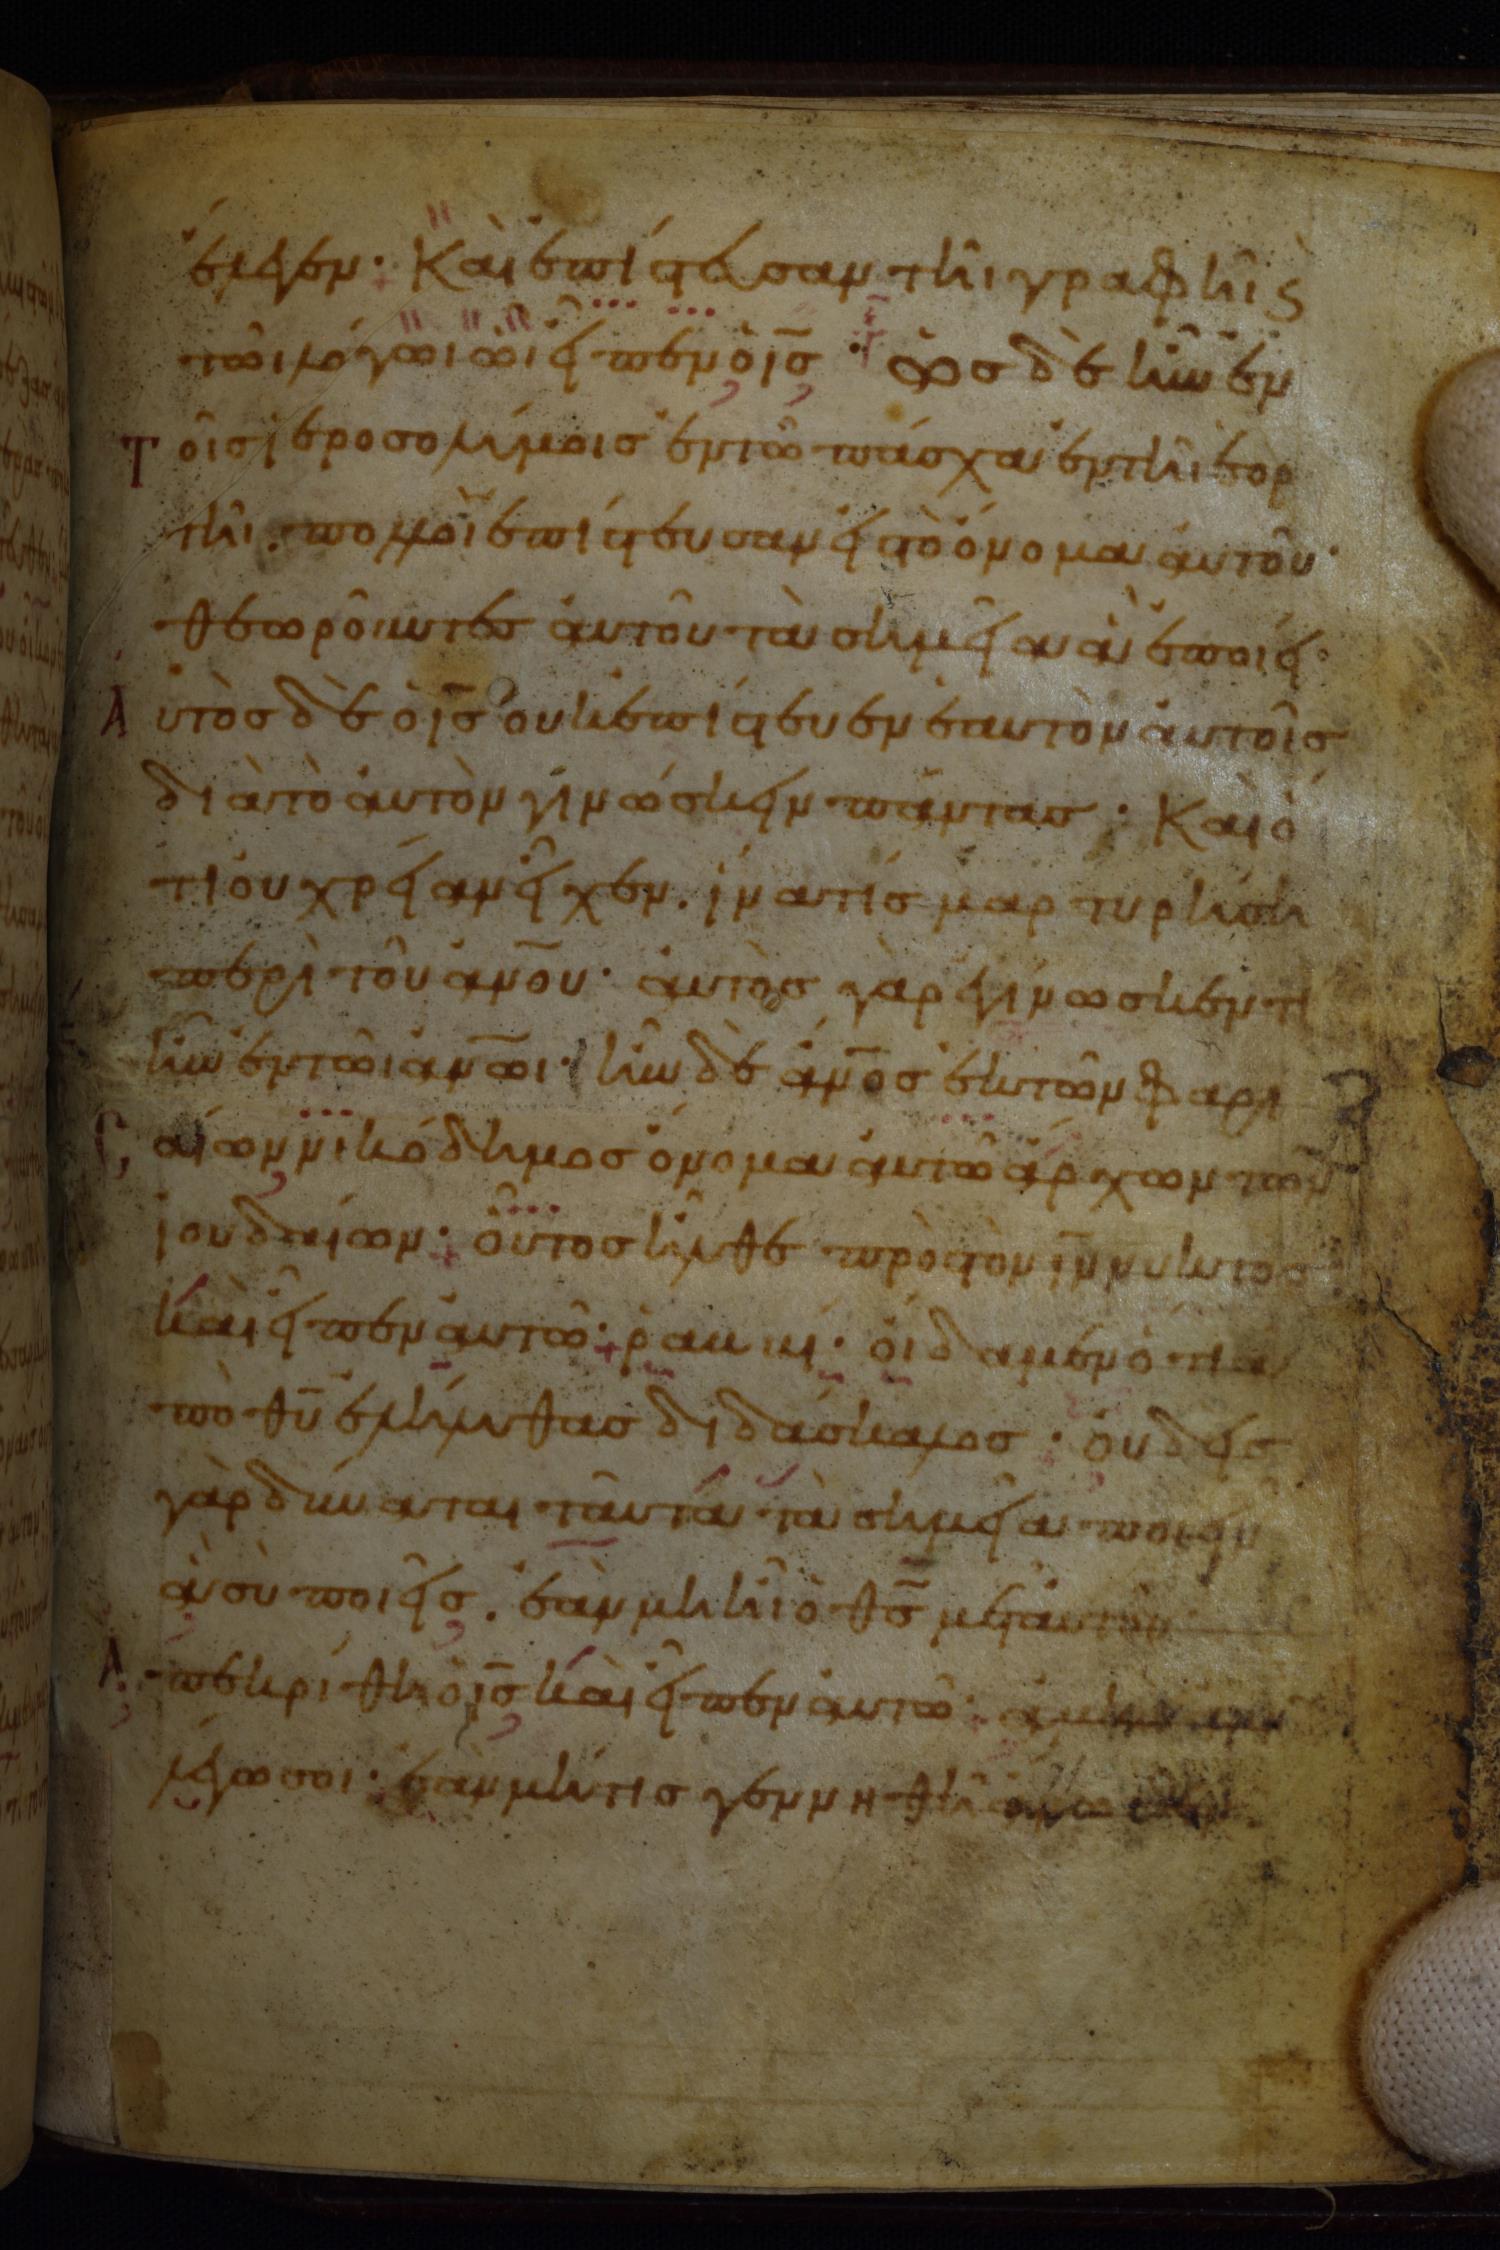 ἔλεγεν· Καὶ ἐπίστευσαν τῆι γραφῆι ϛ
τῶι λόγωι ὧι εἶπεν ὁ ις̅· Ὡς δὲ ἦν ἐν
Τοῖς ἱεροσολύμοις ἐν τῶ πάσχα ἐν τῆι ἑορ
τῆι. πολλοὶ ἐπίστευσαν εἰς τὸ ὄνομα αὐτοῦ·
θεωροῦντες αὐτοῦ τὰ σημεῖα ἃ ἐποίει·
Αὐτὸς δὲ ὁ ις̅ οὐκ ἐπίστευεν ἑαυτὸν αὐτοῖς
διὰ τὸ αὐτὸν γινώσκειν πάντας· Καὶ ὅ
τι οὐ χρείαν εἶχεν. ἵνα τίς μαρτυρήση
περὶ τοῦ ἀν̅ου· αὐτὸς γὰρ ἐγίνωσκεν τί
ἦν ἐν τῶι ἀν̅ωι· ἦν δὲ ἀν̅ος ἐκ τῶν φαρι
Σαίων νικόδημος ὄνομα αὐτῶ ἄρχων τῶν
ἰουδαίων· οὗτος ἦλθε πρὸς τὸν ιν̅ νυκτὸς
καὶ εἶπεν αὐτῶ· ῥαββί· οἴδαμεν ὅτι ἀ
πὸ θυ̅ ἐλήλυθας διδάσκαλος· οὐδεὶς
γὰρ δύναται ταῦτα τὰ σημεῖα ποιεῖν
ἃ σὺ ποιεῖς. ἐὰν μὴ ἦι ὁ θς̅ μετ' αὐτοῦ
Ἀπεκρίθη ὁ ις̅ καὶ εἶπεν αὐτῶ· ἀμὴν ἀμὴν
λέγω σοι· ἐὰν μή τις γεννηθῆ ἄνωθεν